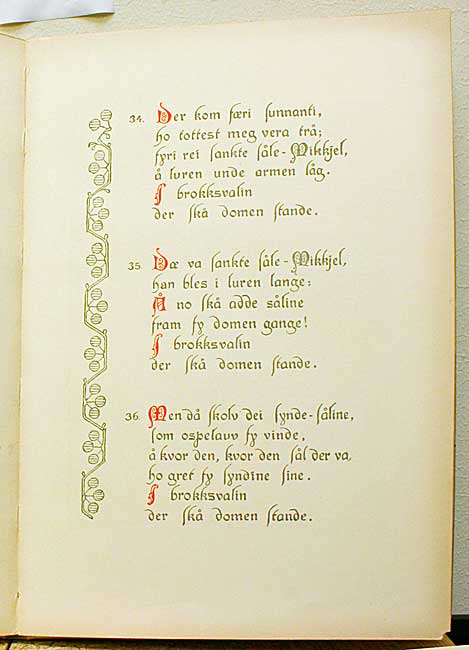 34. Der kom færi sunnanti,
ho tottest meg vera trå;
fyri rei sankte såle-Mikkjel,
å luren unde armen låg.
I brokksvalin
der skå domen stande.
35. Dæ va sankte såle-Mikkjel,
han bles i luren lange:
Å no skå adde såline
fram fy domen gange!
I brokksvalin
der skå domen stande.
36. Men då skolv dei synde-såline,
som ospelauv fy vinde,
å kvor den, kvor den sål der va,
ho gret fy syndine sine.
I brokksvalin
der skå domen stande.